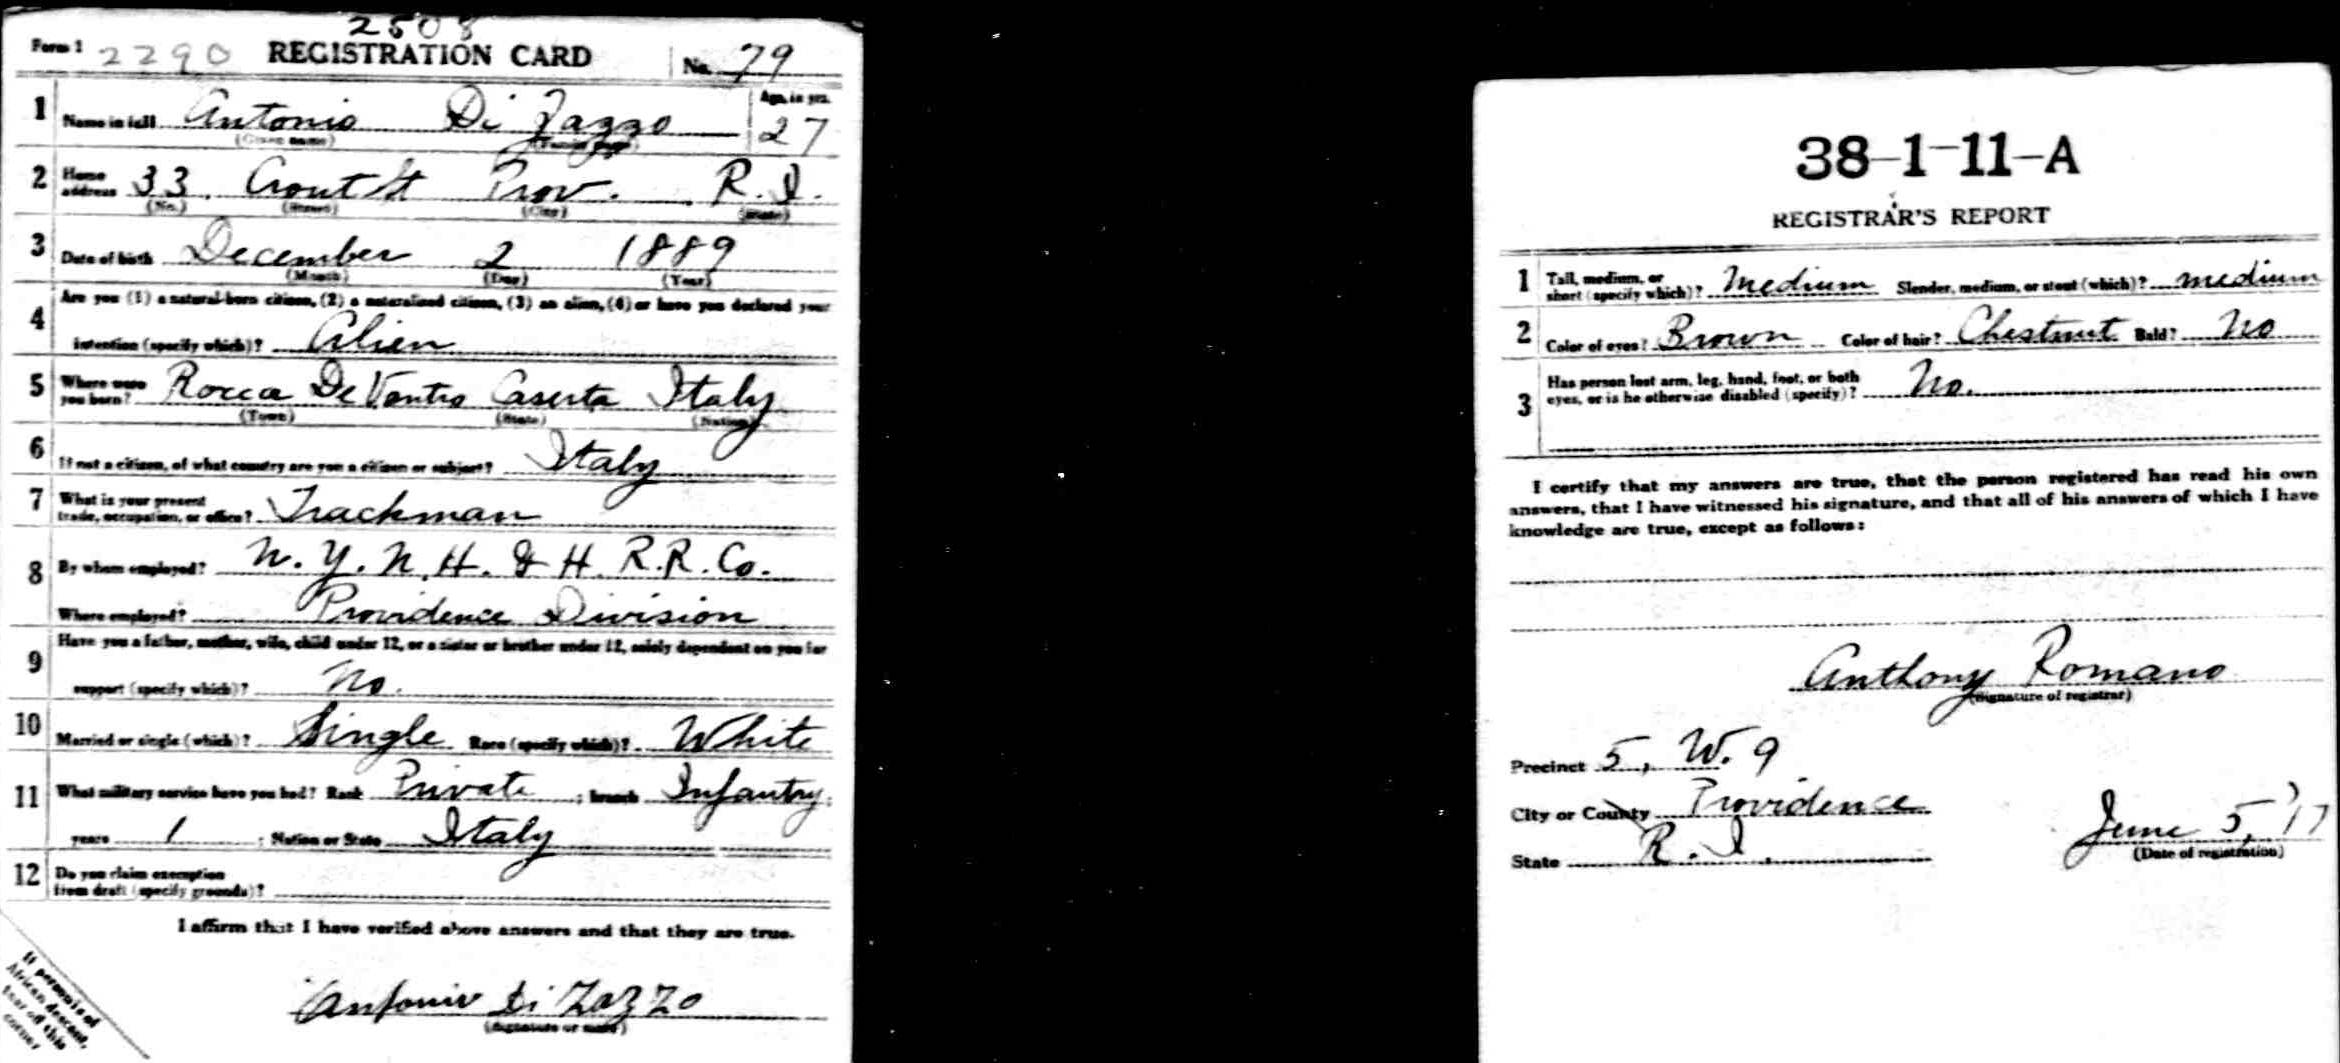 2508
Form 1 2290 REGISTRATION CARD No. 79
1 Name in full Antonio Di Zazzo Age, in yrs. 27
(Given name) (Family name)
2 Home address 33 Grout St Prov. R.I.
(No.) (Street) (City) (State)
3 Date of birth December 2 1889
(Month) (Day) (Year)
4 Are you (1) a natural-born citizen, (2) a naturalized citizen, (3) an alien, (4) or have you declared your
intention (specify which)? Alien
5 Where were you born? Rocca De Vantro Caserta Italy
(Town) (State) (Nation)
6 If not a citizen, of what country are you a citizen or subject? Italy
7 What is your present
trade, occupation, or office? Trackman
8 By whom employed? N.Y.N.H. & H. R.R. Co.
Where employed? Providence Division
9 Have you a father, mother, wife, child under 12, or a sister or brother under 12, solely dependent on you for
support (specify which)? No.
10 Married or single (which)? Single Race (specify which)? White
11 What military service have you had? Rank Private ; branch Infantry;
years 1 ; Nation or State Italy
12 Do you claim exemption
from draft (specify grounds)?
I affirm that I have verified above answers and that they are true.
Antonio Di Zazzo
(Signature or mark)
If person is of
African descent,
tear off this
corner
38-1-11-A
REGISTRAR'S REPORT
1 Tall, medium, or
short (specify which)? Medium Slender, medium, or stout (which)? medium
2 Color of eyes? Brown Color of hair? Chestnut Bald? No
3 Has person lost arm, leg, hand, foot, or both
eyes, or is he otherwise disabled (specify)? No.
I certify that my answers are true, that the person registered has read his own
answers, that I have witnessed his signature, and that all of his answers of which I have
knowledge are true, except as follows:
Anthony Romano
(Signature of registrar)
Precinct 5, W. 9
City or County Providence
State R.I.
June 5, '17
(Date of registration)